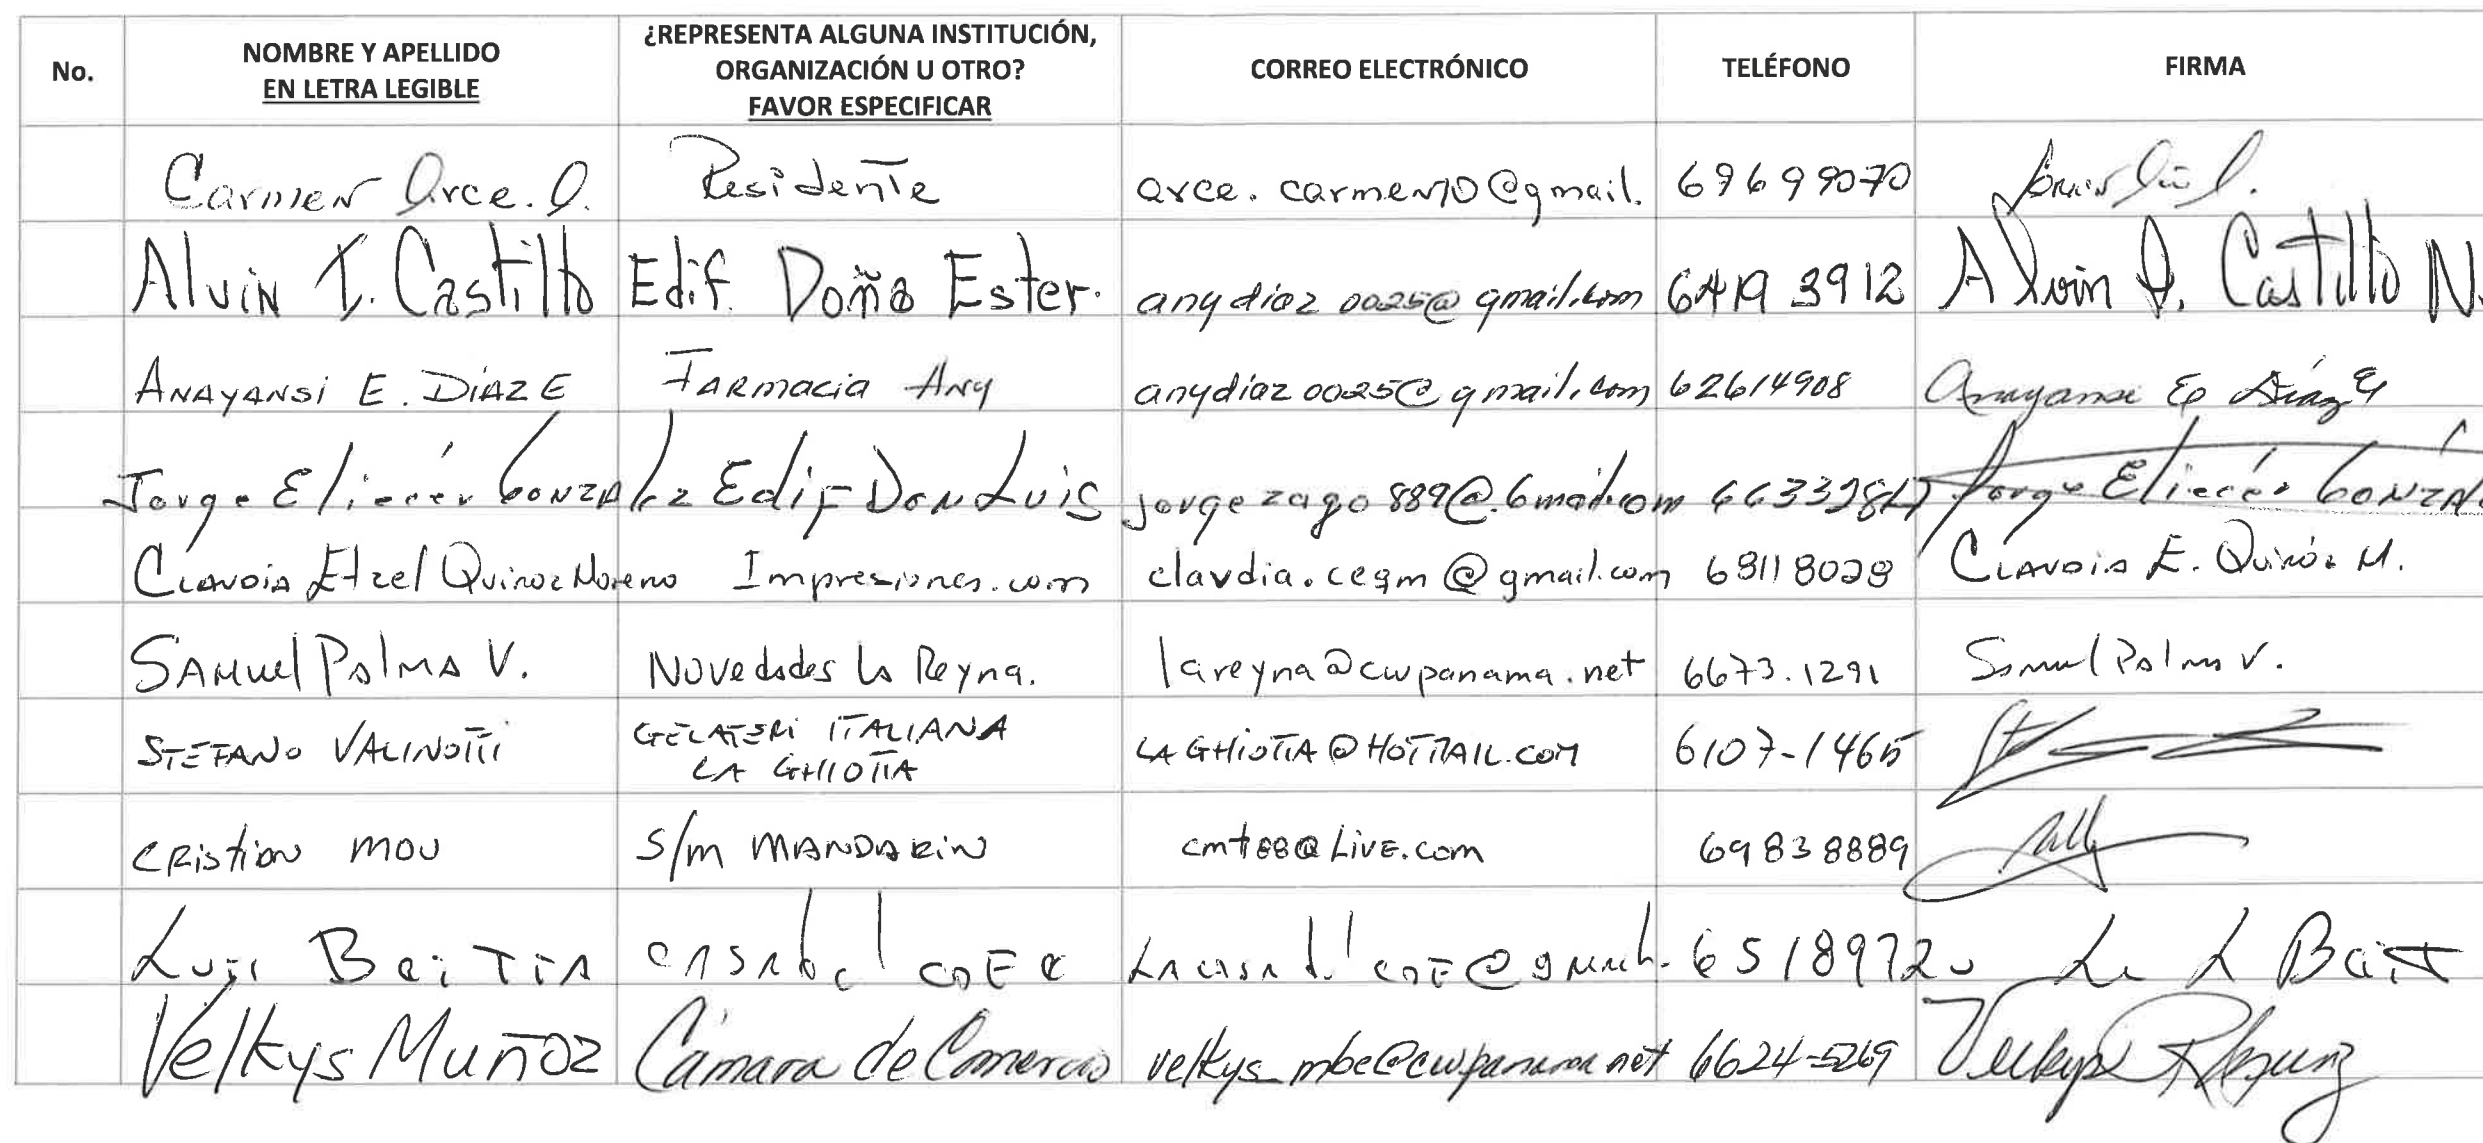 No. NOMBRE Y APELLIDO EN LETRA LEGIBLE ¿REPRESENTA ALGUNA INSTITUCIÓN, ORGANIZACIÓN U OTRO? FAVOR ESPECIFICAR CORREO ELECTRÓNICO TELÉFONO FIRMA
Carmen Arce. O. Residente arce.carmen10@gmail. 69699070
Alvin I. Castillo Edif. Doña Ester. anydiaz0025@gmail.com 6419 3912 Alvin I. Castillo N.
ANAYANSI E. DÍAZ E FARMACIA Any anydiaz0025@gmail.com 62614908 Anayansi E Díaz E
Jorge Eliécer GONZALez Edif Don Luis jorgezago889@Gmail.com Jorge Eliécer GONZA
CLAUDIA Etzel Quiroz Moreno Impresiones.com claudia.ceqm@gmail.com 68118028 CLAUDIA E. Quiróz M.
SAMUel PAlMA V. Novedades la Reyna. lareyna@cwpanama.net 6673.1291 Samuel Palma V.
STEFANO VALINOTTI GELATERI ITALIANA LA GHIOTTA LAGHIOTTA@HOTMAIL.COM 6107-1465
CRistian MOU S/m MANDARIN cmt88@LivE.com 69838889
Luis BaiTTA CASA del CAFE 6518972
Velkys Muñoz Cámara de Comercio velkys_mbe@cwpanama.net 6624-5269